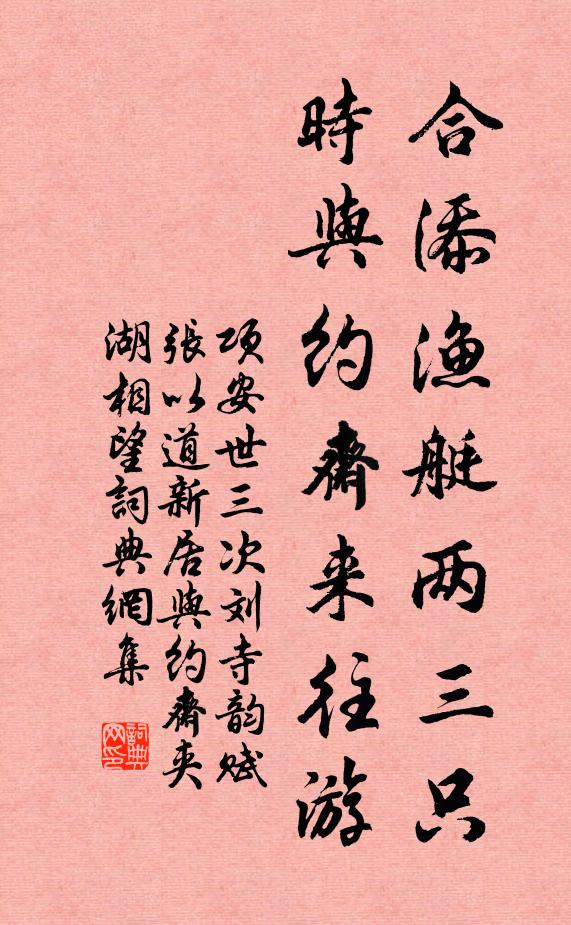 合添漁艇两三只
時與約齋来往游
项安世三次刘寺韵赋
張以道新居與約齋夹
湖相望詞典網集
詞典网印